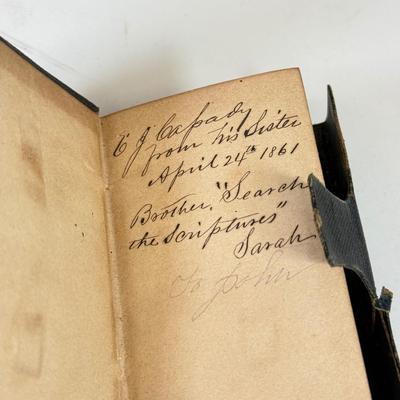 E J Cassady
from his Sister
April 24th 1861
Brother, "Search
the Scriptures"
Sarah
To John